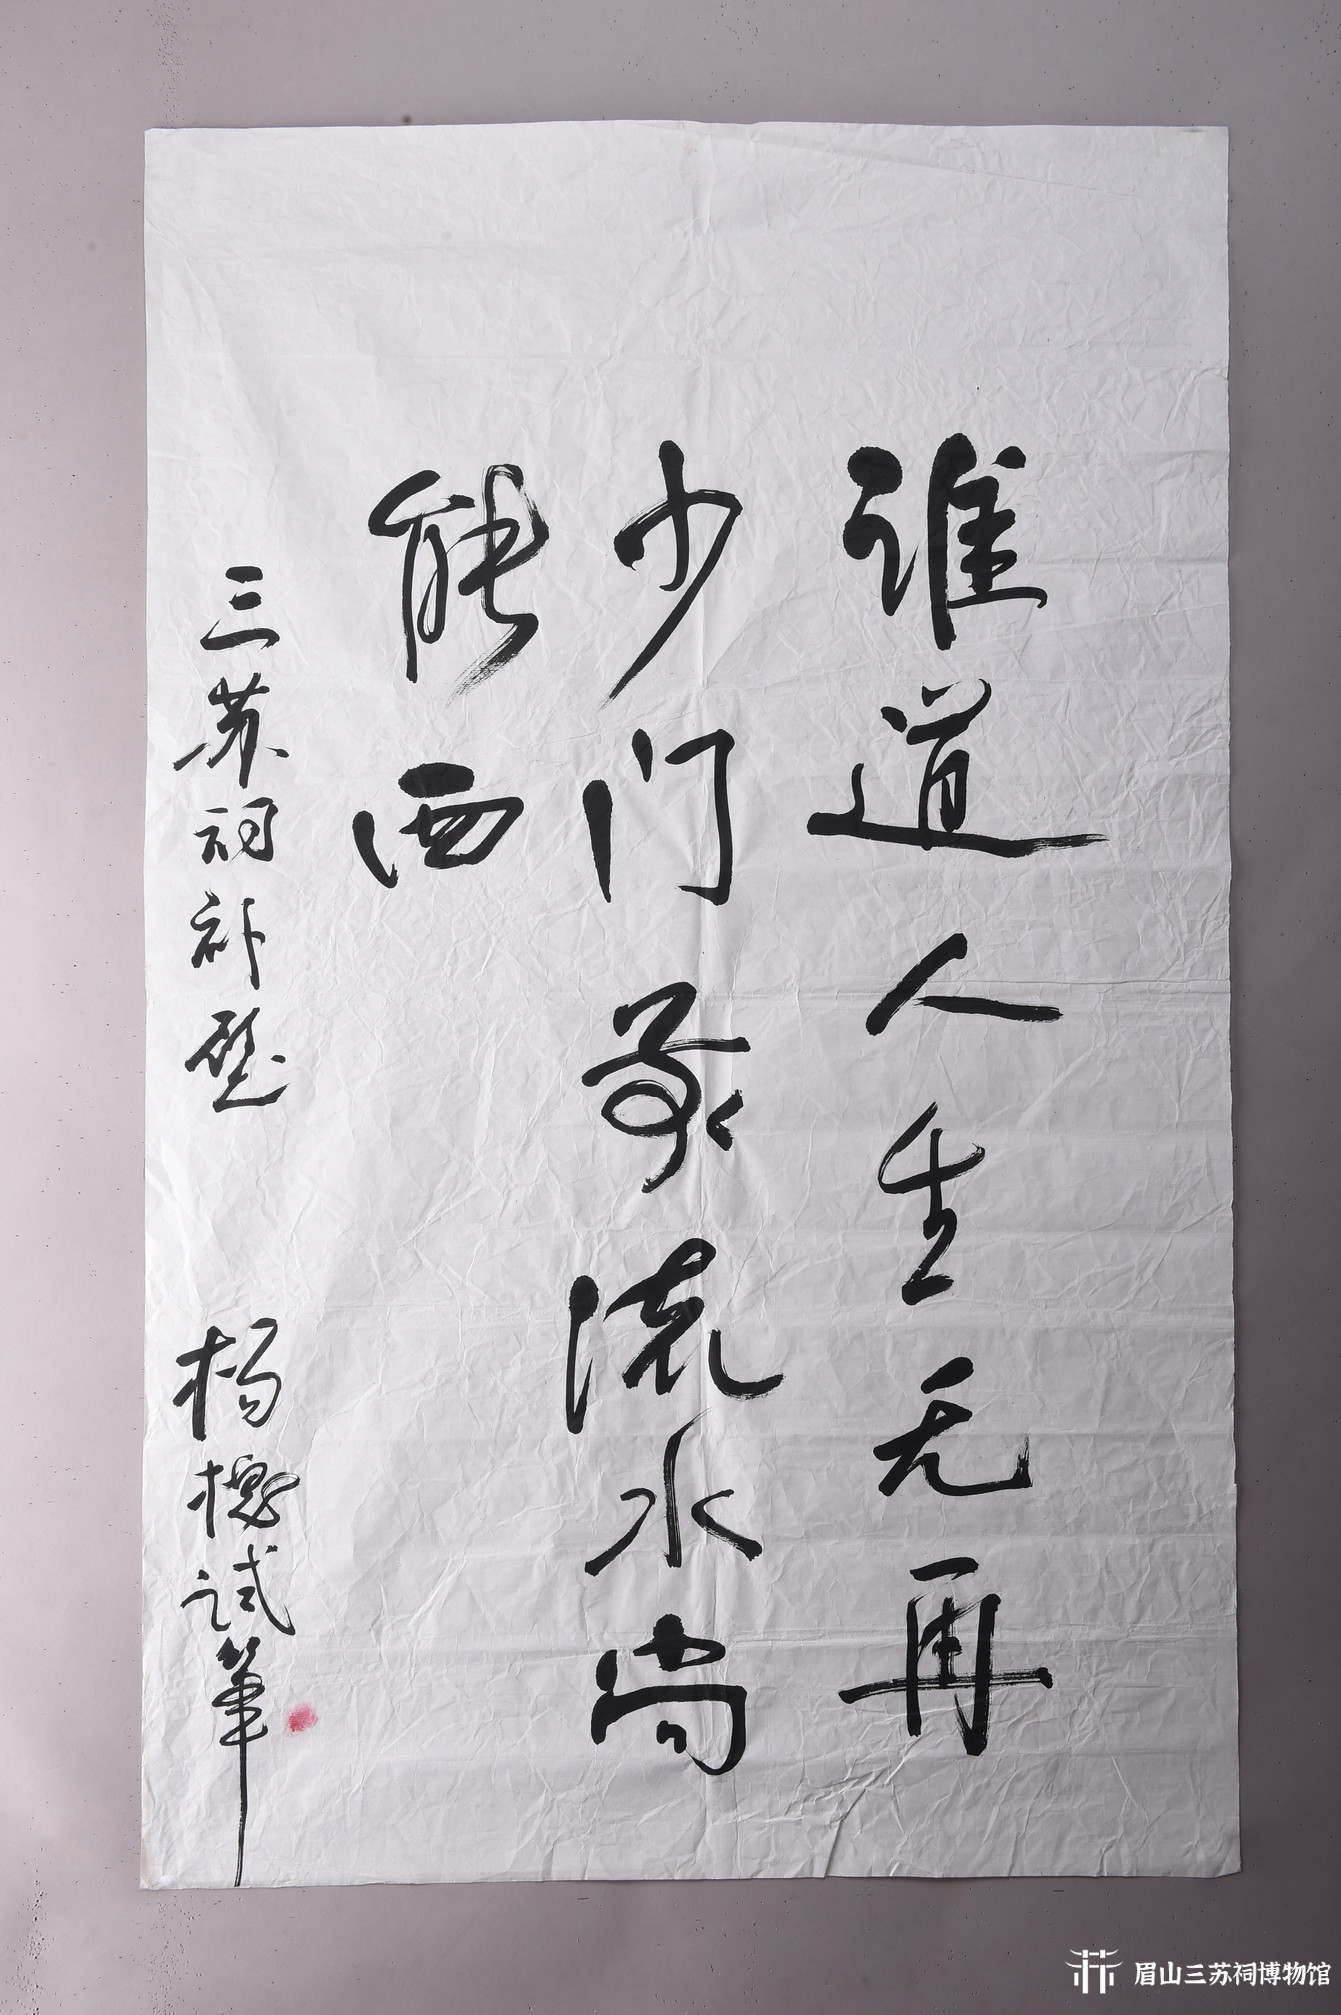 谁道人生无再
少门前流水尚
能西
三苏祠补壁 杨槐试筆
眉山三苏祠博物馆